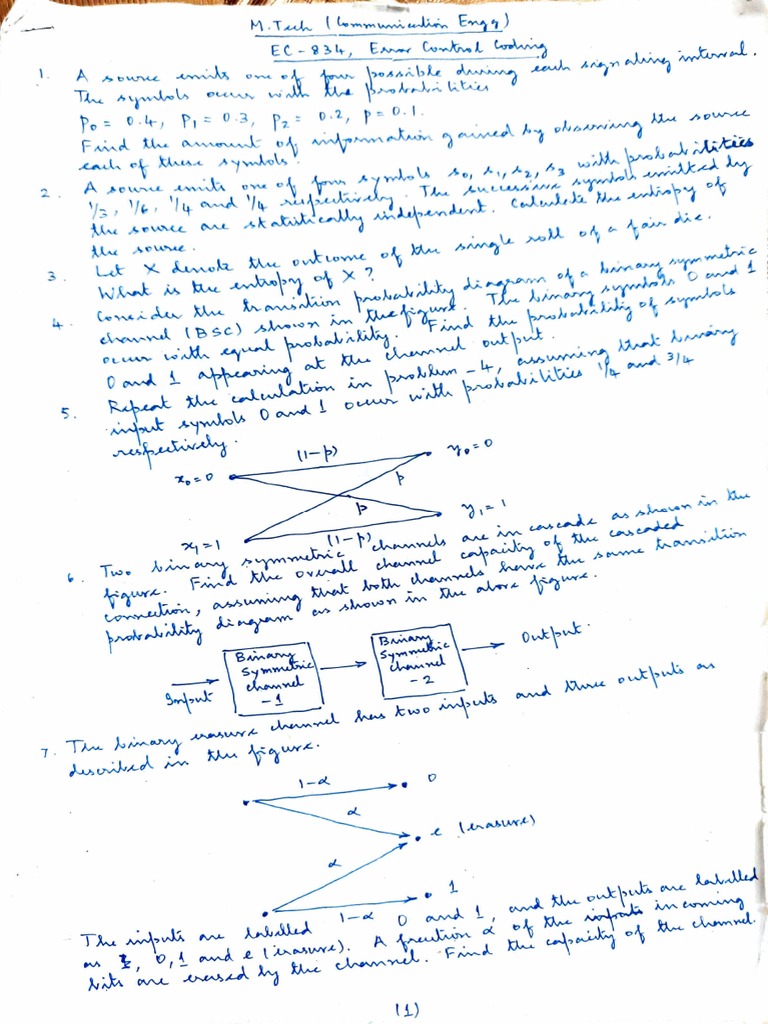 M.Tech (Communication Engg)
EC-834, Error Control Coding
1. A source emits one of four possible during each signaling interval.
The symbols occur with the probabilities
P₀ = 0.4, P₁ = 0.3, P₂ = 0.2, P = 0.1.
Find the amount of information gained by observing the source
each of these symbols.
2. A source emits one of four symbols s₀, s₁, s₂, s₃ with probabilities
1/3, 1/6, 1/4 and 1/4 respectively. The successive symbols emitted by
the source are statistically independent. Calculate the entropy of
the source.
3. Let X denote the outcome of the single roll of a fair die.
What is the entropy of X?
4. Consider the transition probability diagram of a binary symmetric
channel (BSC) shown in the figure. The binary symbols 0 and 1
occur with equal probability. Find the probability of symbols
0 and 1 appearing at the channel output.
5. Repeat the calculation in problem-4, assuming that binary
input symbols 0 and 1 occur with probabilities 1/4 and 3/4
respectively.
(1-p)
x₀=0
y₀=0
p
p
y₁=1
x₁=1
(1-p)
6. Two binary symmetric channels are in cascade as shown in the
figure. Find the overall channel capacity of the cascaded
connection, assuming that both channels have the same transition
probability diagram as shown in the above figure.
Input
Binary
Symmetric
channel
-1
Binary
Symmetric
channel
-2
Output.
7. The binary erasure channel has two inputs and three outputs as
described in the figure.
1-α
0
α
e (erasure)
α
1
1-α
The inputs are labelled 0 and 1, and the outputs are labelled
as 0,1 and e (erasure). A fraction α of the incoming
bits are erased by the channel. Find the capacity of the channel.
(1)